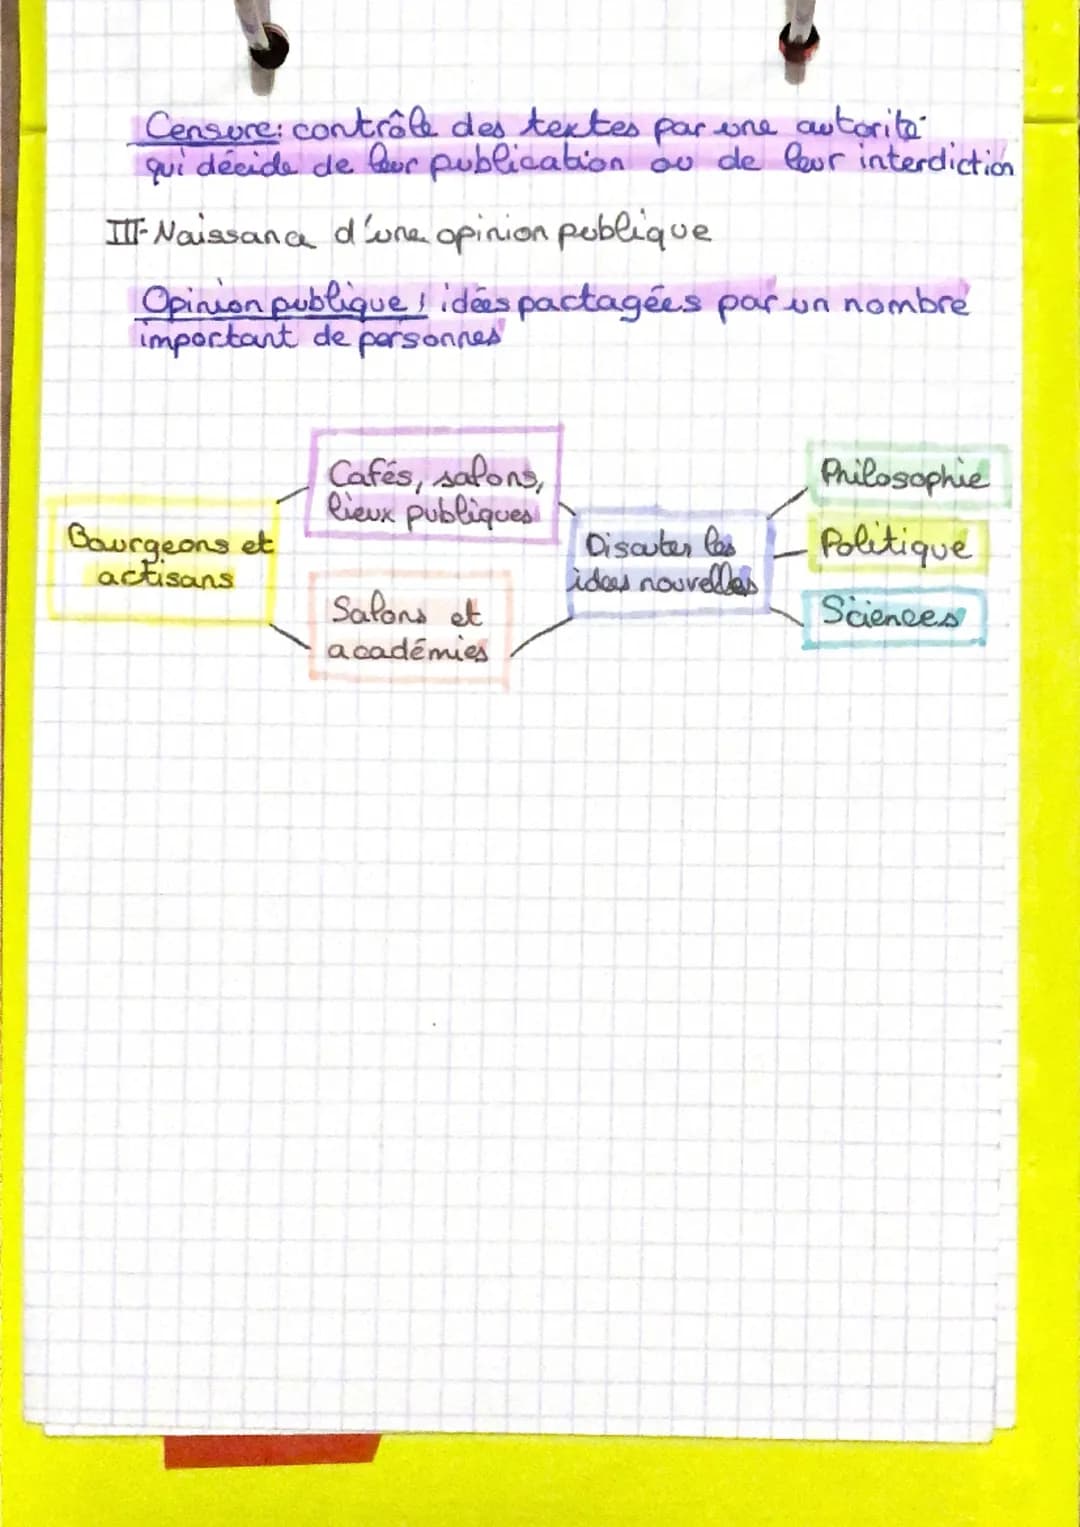 Censure: contrôle des textes par une autorité
qui décide de leur publication ou de leur interdiction
III-Naissance d'une opinion publique
Opinion publique : idées partagées par un nombre
important de personnes
Cafés, salons,
lieux publiques
Bourgeons et
artisans
Salons et
académies
Discuter les
idées nouvelles
Philosophie
Politique
Sciences